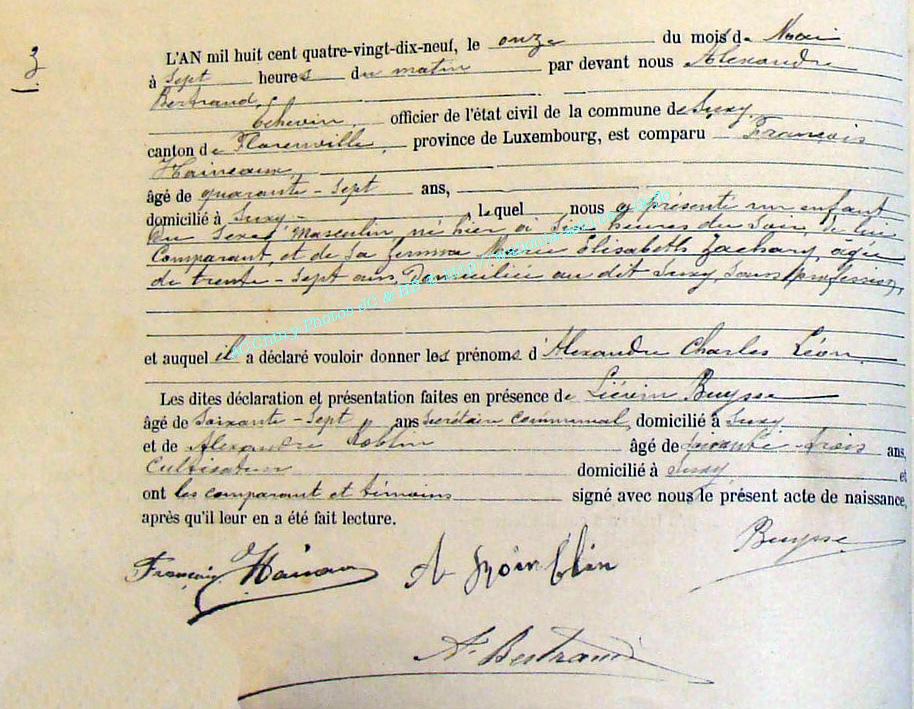 3
L'AN mil huit cent quatre-vingt-dix-neuf, le onze du mois de Mai
à sept heures du matin par devant nous Alexandre
Bertrand,
échevin, officier de l'état civil de la commune de Suxy,
canton de Florenville, province de Luxembourg, est comparu François
Hainaux,
âgé de quarante-sept ans,
domicilié à Suxy, lequel nous a présenté un enfant
du sexe masculin né hier, à six heures du soir, de lui
Comparant, et de sa femme Marie Elisabeth Zachary, âgée
de trente-sept ans, domiciliée au dit Suxy, sans profession,
et auquel il a déclaré vouloir donner les prénoms d'Alexandre Charles Léon.
Les dites déclaration et présentation faites en présence de Liévin Buysse
âgé de soixante-sept ans secrétaire communal, domicilié à Suxy
et de Alexandre âgé de trois ans,
Cultivateur domicilié à Suxy, et
ont les comparant et témoins signé avec nous le présent acte de naissance,
après qu'il leur en a été fait lecture.
François Hainaux A Buysse
A. Bertrand